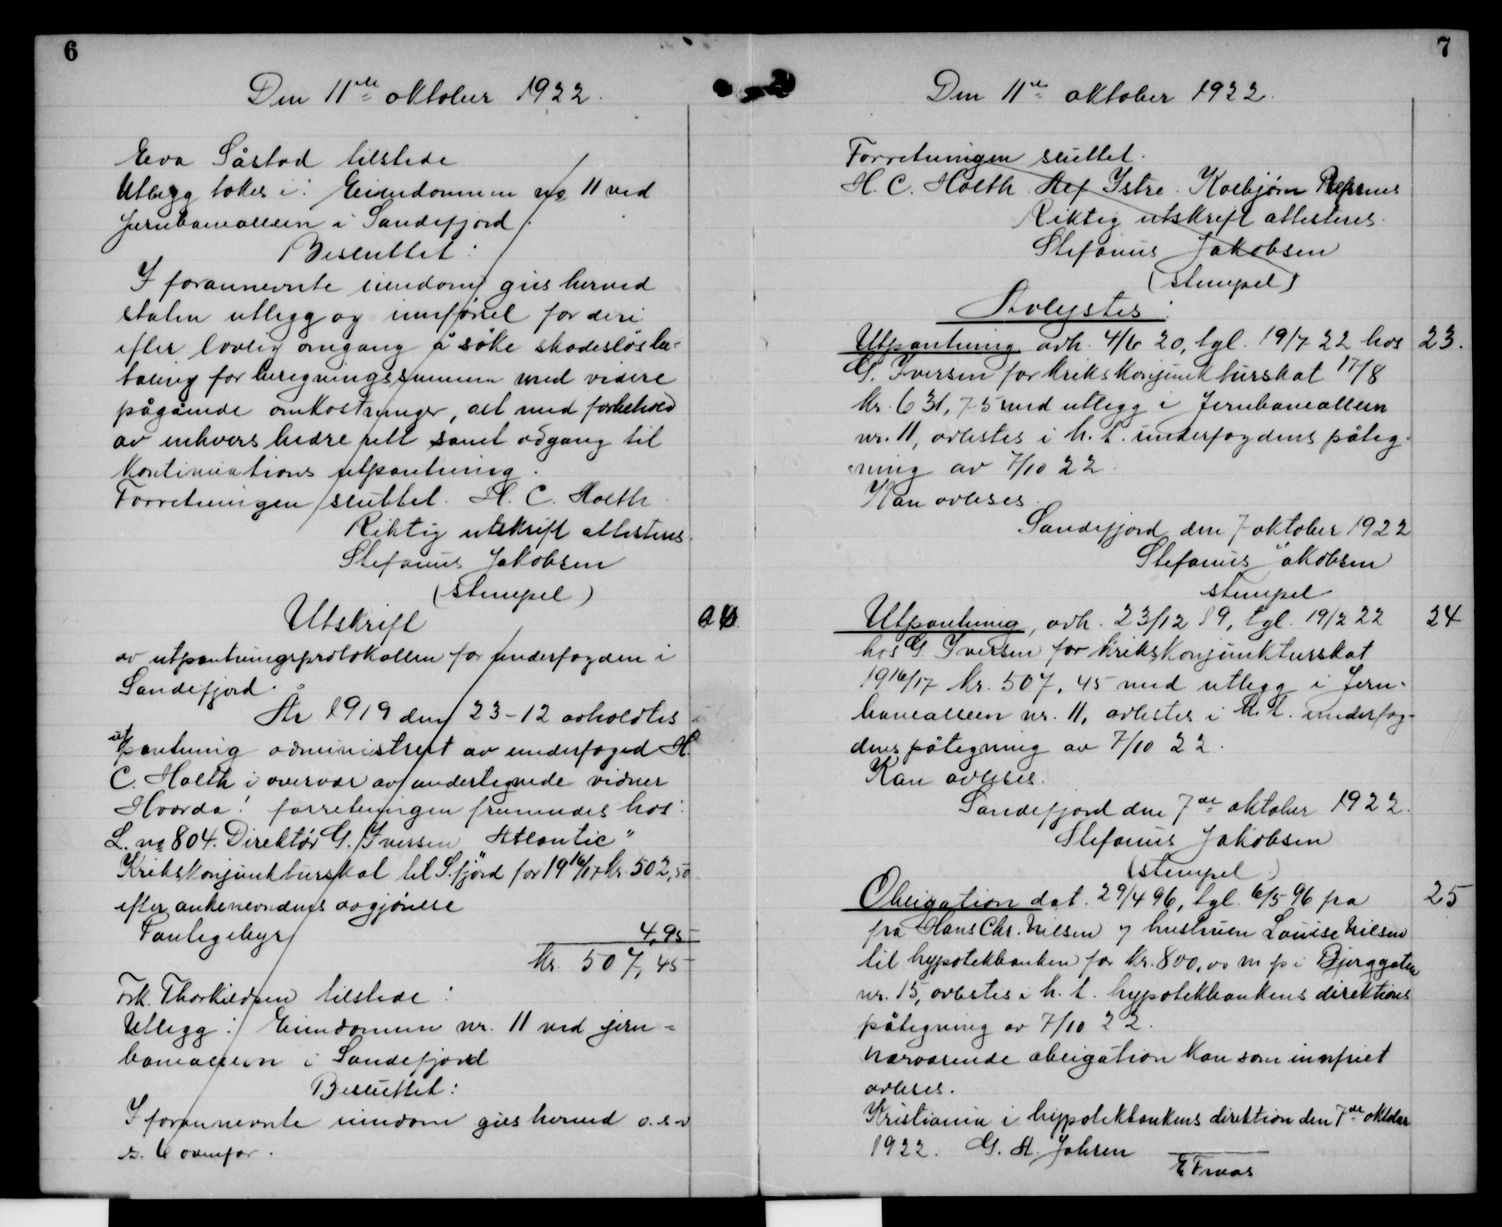 6
Den 11te oktober 1922.
Eva Såstad tilstede
Utlegg tokes i: Eiendommen no 11 ved
jernbanealleen i Sandefjord.
Besluttet:
I forannevnte eiendom gies herved
staten utlegg og innførsel for deri
efter lovlig omgang å søke skadesløs be-
taling for beregningssummen med videre
pågående omkostninger, alt med forbehold
av enhvers bedre rett samt adgang til
kontinuations utpantning.
Forretningen sluttet. H. C. Holth.
Riktig utskrift attesteres.
Stefanus Jakobsen
(stempel)
Utskrift
av utpantningsprotokollen for underfogden i
Sandefjord.
År 1919 den 23-12 avholdtes
utpantning administrert av underfoged H.
C. Holth i overvær av undertegnede vidner
Hvorda! forretningen fremmedes hos:
L. no 804. Direktør G. Iversen "Atlantic"
Krikskonjunkturskat til S.fjord for 1916/17 kr. 502,50
efter ankenevndens avgjørelse
Pantegebyr 4,95
kr. 507,45
Frk. Thorkildsen tilstede:
Utlegg: Eiendommen nr. 11 ved jern-
banealleen i Sandefjord
Besluttet:
I forannevnte eiendom gies herved o.s.v
s. 6 ovenfor.
7
Den 11te oktober 1922.
Forretningen sluttet.
H. C. Holth. Alf Istre. Kolbjørn
Riktig utskrift attesteres.
Stefanus Jakobsen
(stempel)
Avlystes:
Utpantning avh. 4/6 20, tgl. 19/7 22 hos 23.
G. Iversen for krikskonjunkturskat 17/8
kr. 631,75 med utlegg i Jernbanealleen
nr. 11, avlestes i h. t. underfogdens påteg-
ning av 7/10 22.
Kan avleses.
Sandefjord den 7 oktober 1922
Stefanus Jakobsen
stempel
Utpantning, avh. 23/12 19, tgl. 19/2 22 24
hos G. Iversen for krikskonjunkturskat
1916/17 kr. 507,45 med utlegg i Jern-
banealleen nr. 11, avlestes i h. t. underfog-
dens påtegning av 7/10 22.
Kan avleses.
Sandefjord den 7de oktober 1922.
Stefanus Jakobsen
(stempel)
Obligation dat. 29/4 96, tgl. 6/5 96 fra 25
fra Hans Chr. Nilsen og hustruen Louise Nilsen
til hypotekbanken for kr. 800,00 m p i Bjerggaten
nr. 15, avlestes i h. t. hypotekbankens direktions
påtegning av 7/10 22.
Nærværende obligation kan som innfriet
avleses.
Kristiania i hypotekbankens direktion den 7de oktober
1922. G. A. Jahren